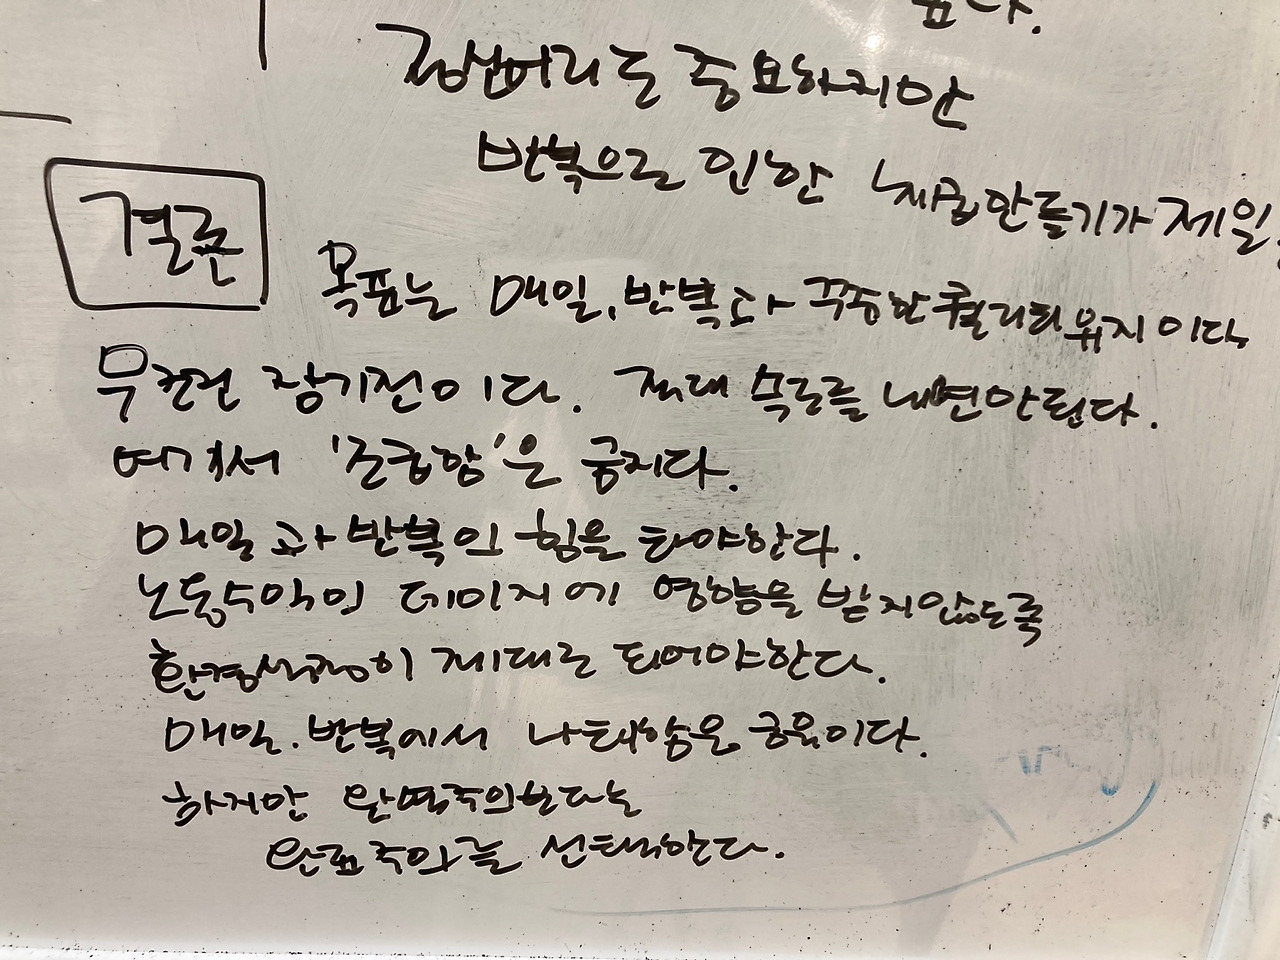 정신머리는 중요하지만
반복으로 인한 만들기가 제일
결론
목표는 매일, 반복과 꾸준한 퀄리티 유지이다
무조건 장기전이다. 절대 속도를 내면안된다.
여기서 '조급함'은 금지다.
매일과 반복의 힘을 타야한다.
노동수익의 데미지에 영향을 받지않도록
환경설정이 제대로 되어야한다.
매일.반복에서 나태함은 금물이다.
하지만 완벽주의보다는
완료주의를 선택한다.